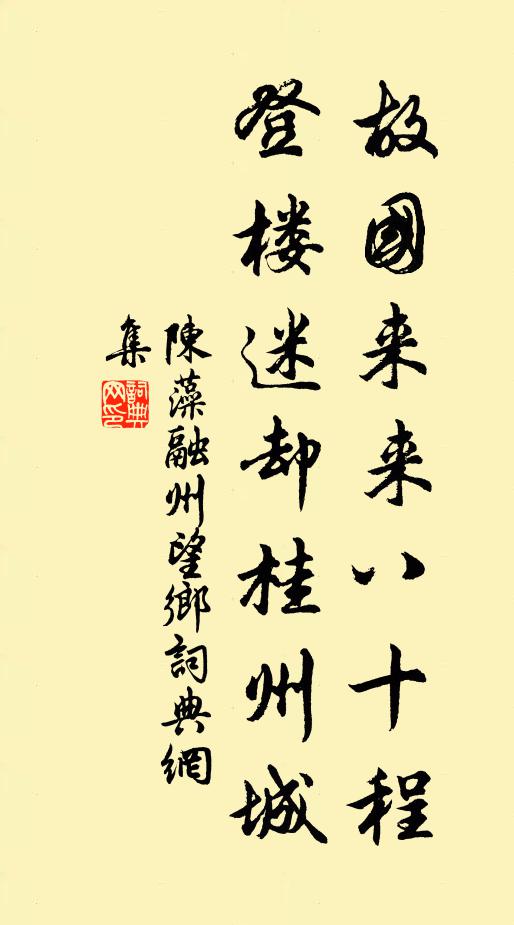 故國来来八十程
登楼迷却桂州城
陳藻融州望鄉詞典網
集
詞典
网印